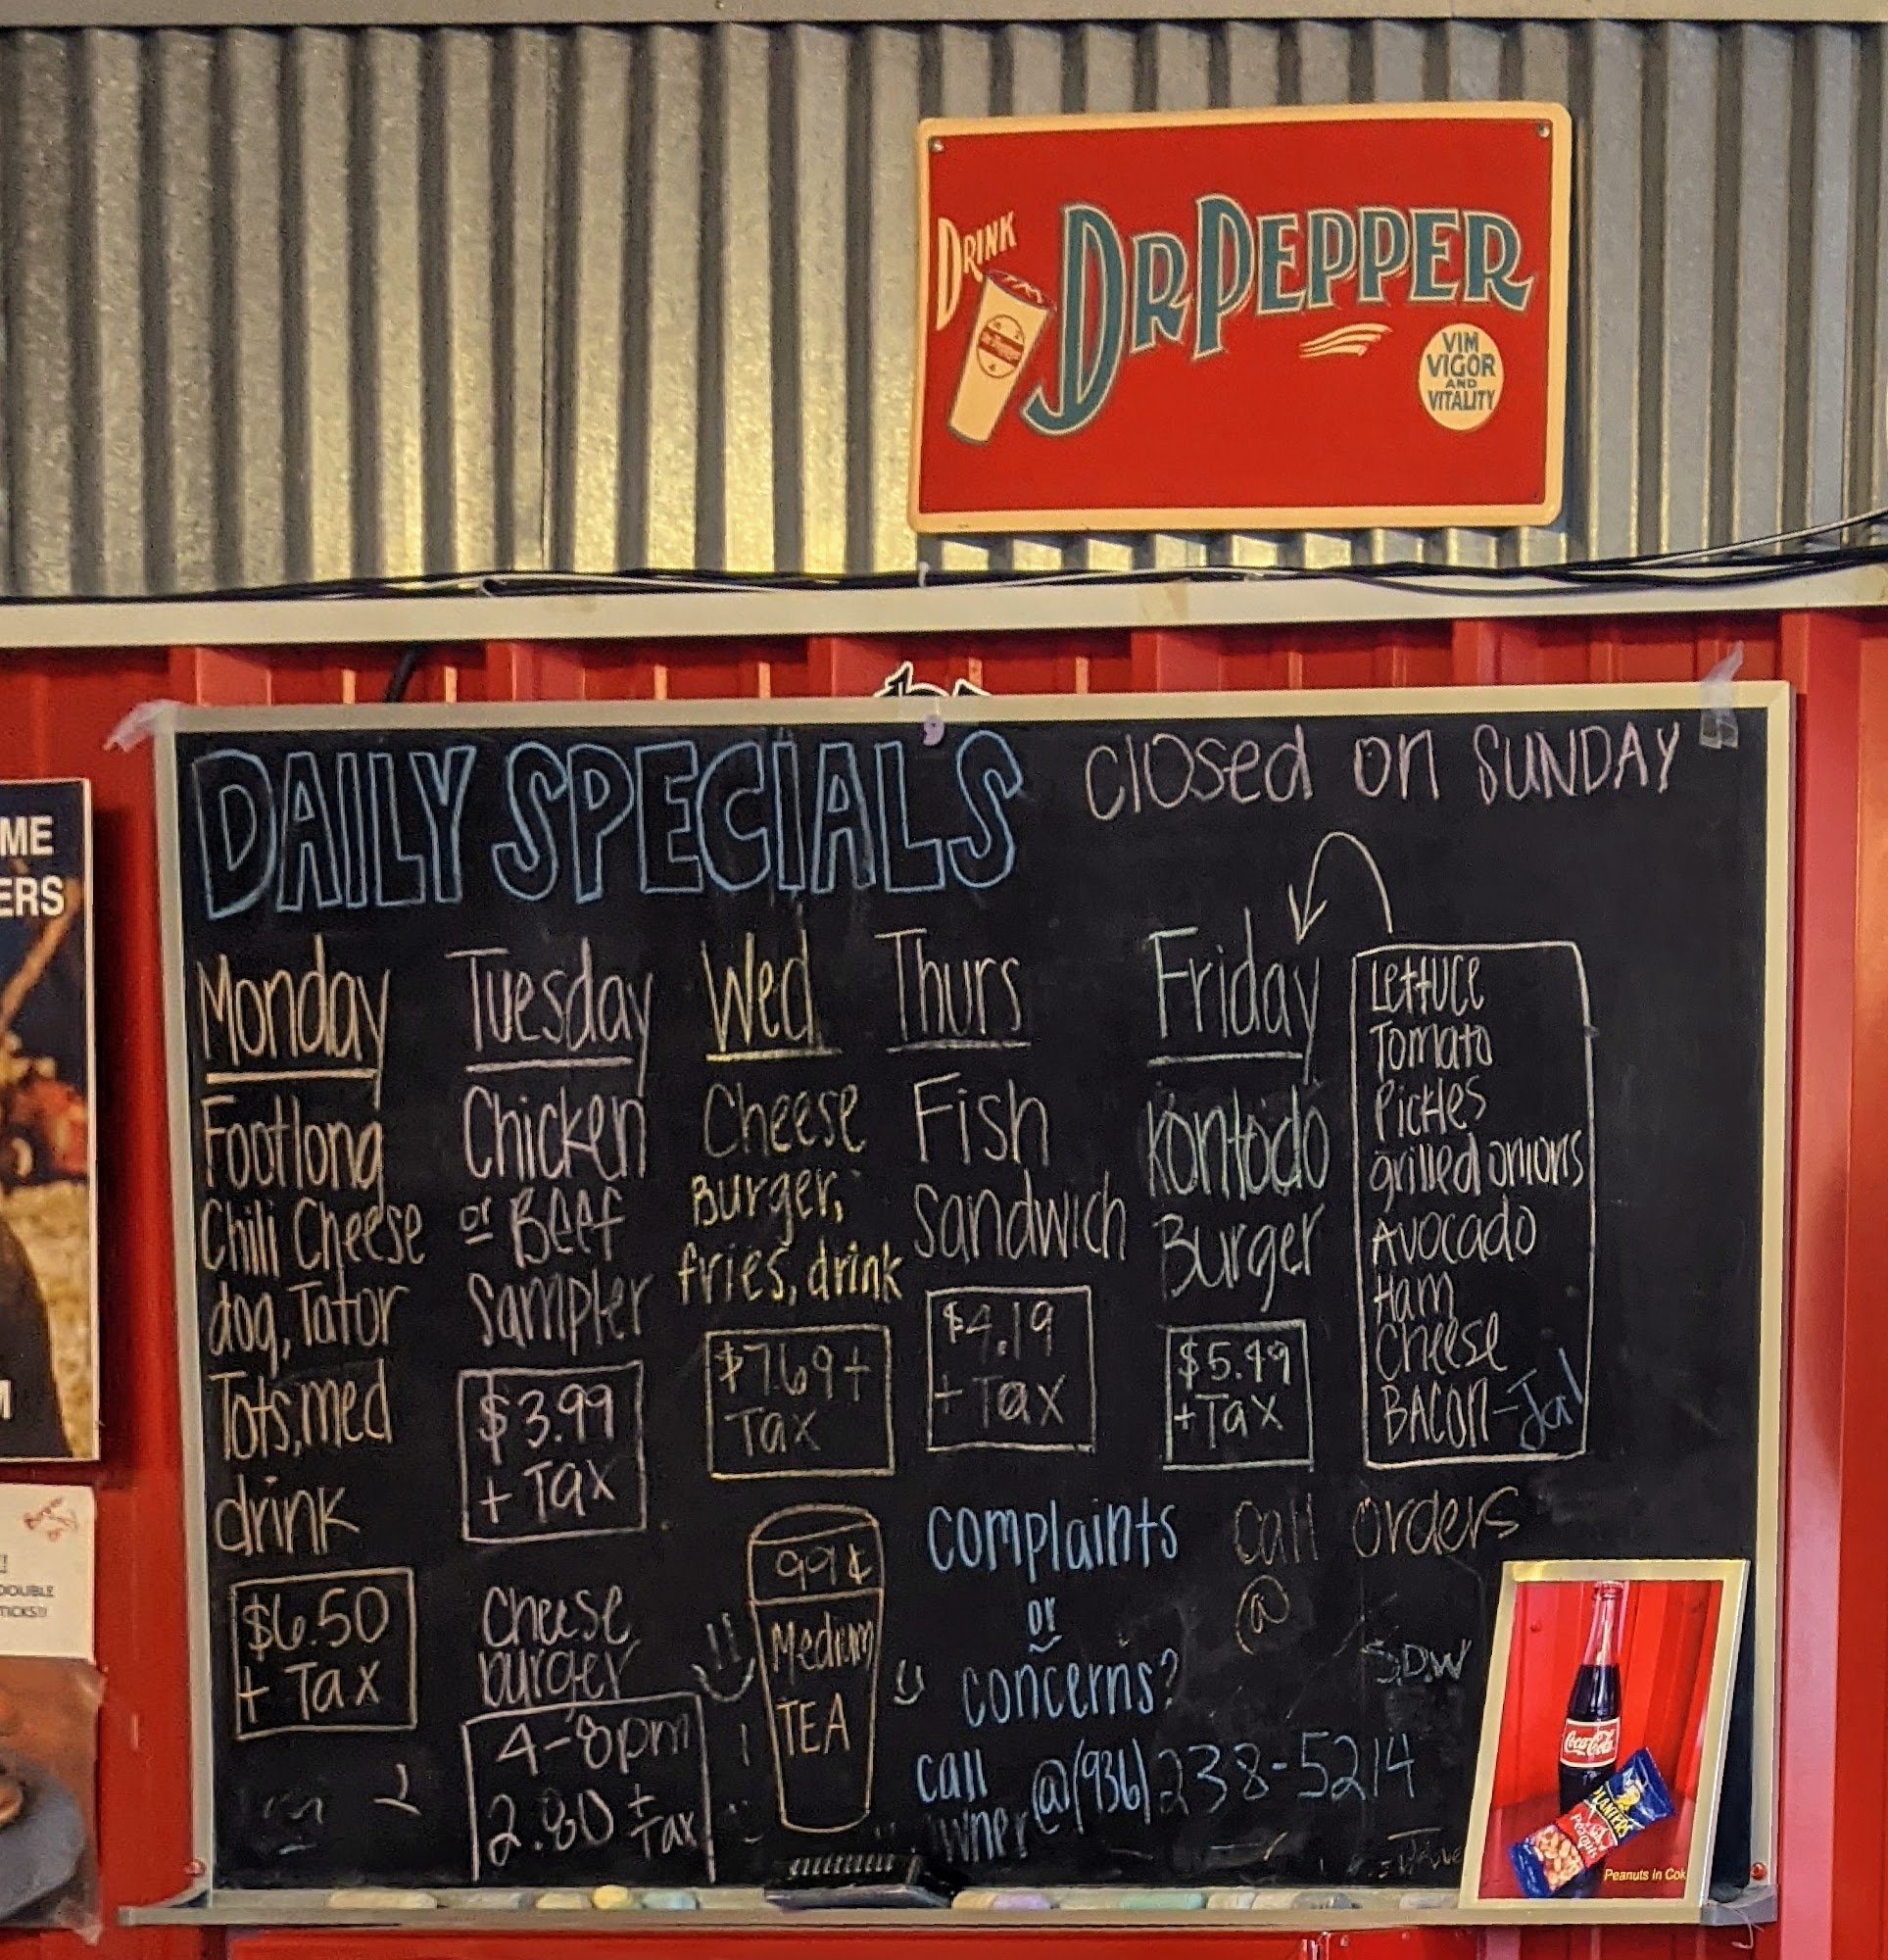 DRINK
DR PEPPER
VIM
VIGOR
AND
VITALITY
DAILY SPECIAL'S
closed on SUNDAY
Monday
Footlong
Chili Cheese
dog, Tator
Tots, med
drink
$6.50
+ Tax
Tuesday
Chicken
or Beef
Sampler
$3.99
+ Tax
Cheese
burger
4-8pm
2.80 +
Tax
Wed
Cheese
Burger,
fries, drink
$7.69 +
Tax
Thurs
Fish
Sandwich
$4.19
+ Tax
Friday
Kontodo
Burger
$5.49
+ Tax
Lettuce
Tomato
Pickles
grilled onions
Avocado
Ham
Cheese
BACON - Jal
99¢
Medium
TEA
complaints
or
concerns?
call
owner @ (936) 238-5214
call orders
@
SDW
Coca-Cola
PLANTERS
Peanuts in Cok
ME
ERS
M
DOUBLE
TICKS!!